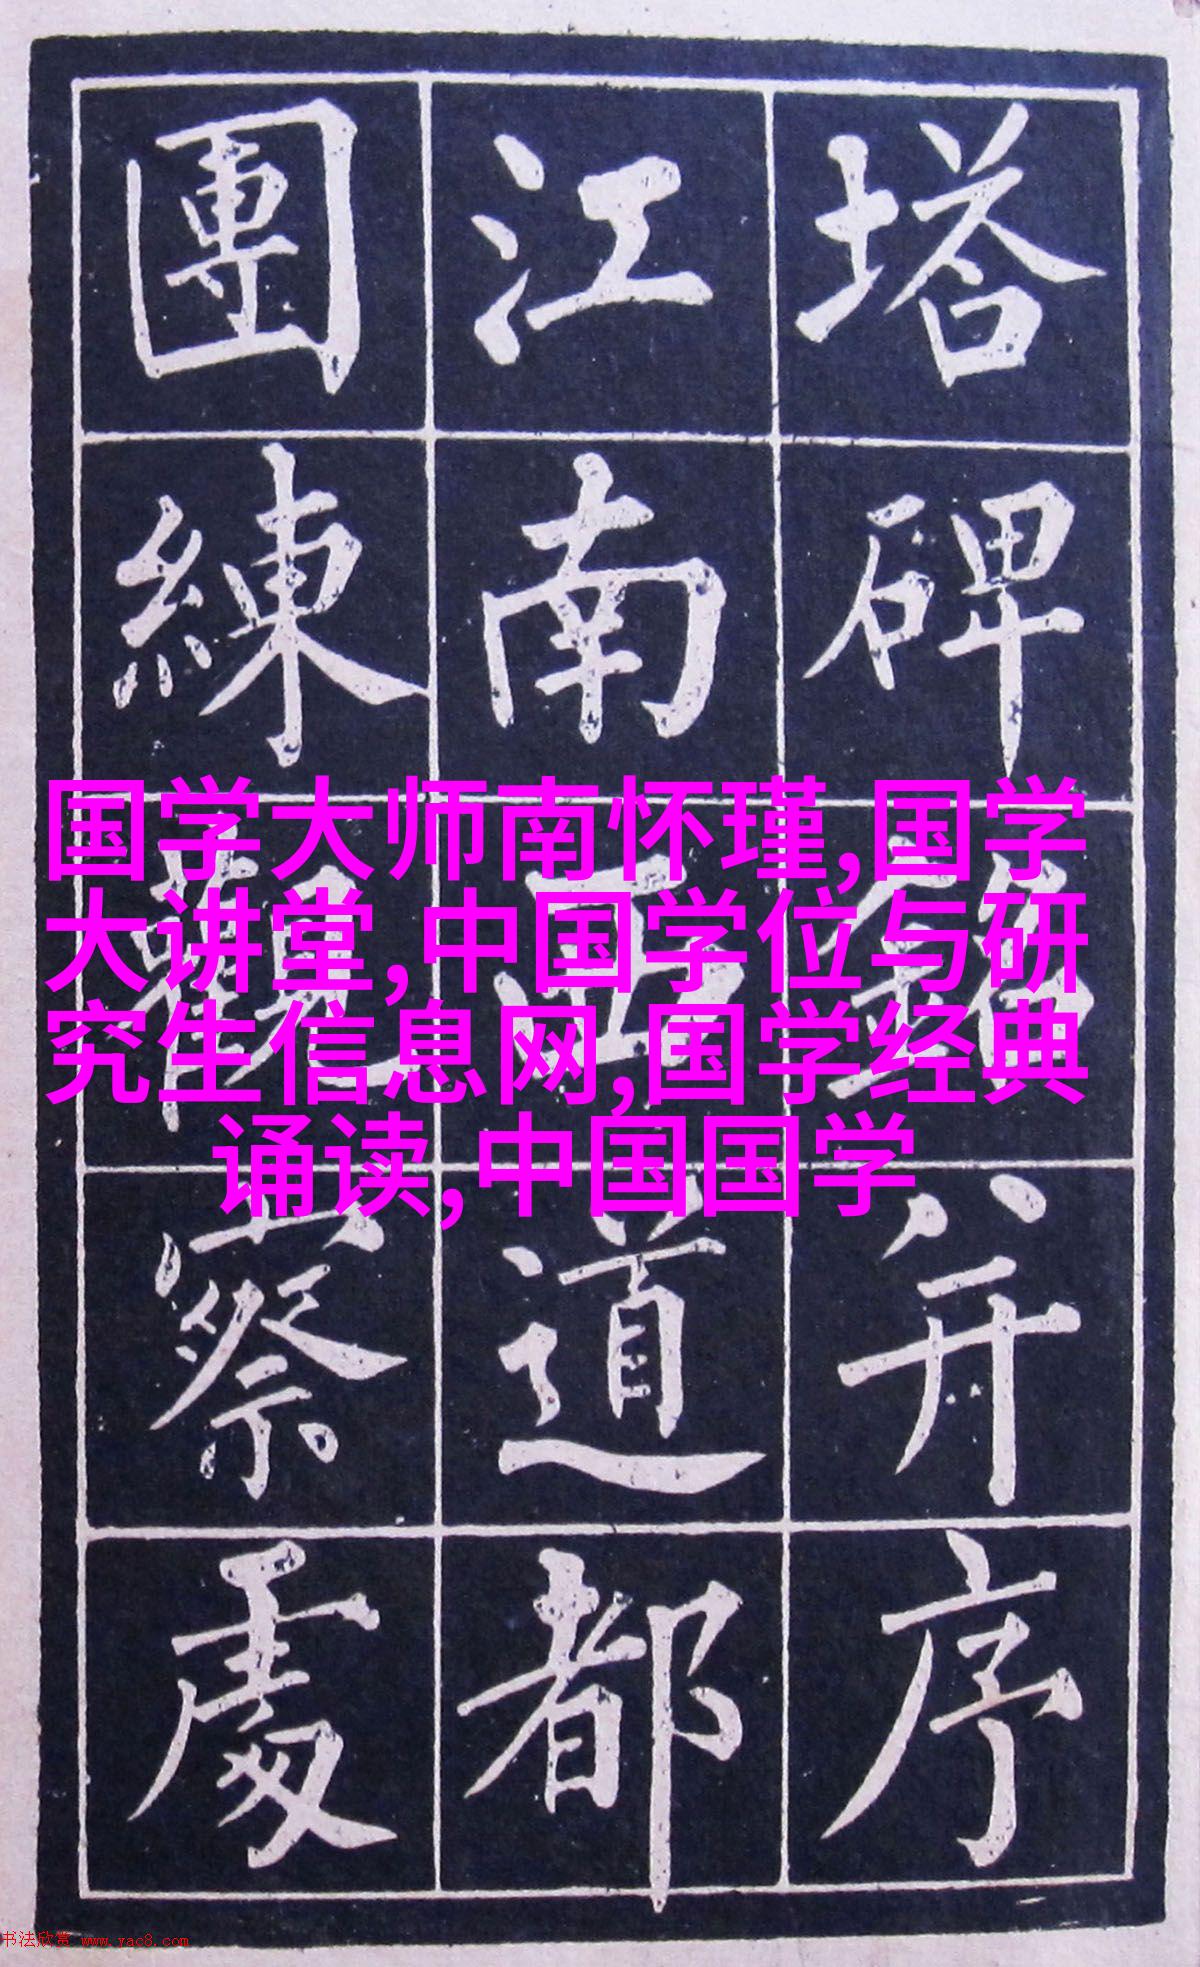 塔碑銘并序
江南西道都
團練觀察處
国学大师南怀瑾,国学
大讲堂,中国学位与研
究生信息网,国学经典
诵读,中国国学
书法欣赏 www.yac8.com